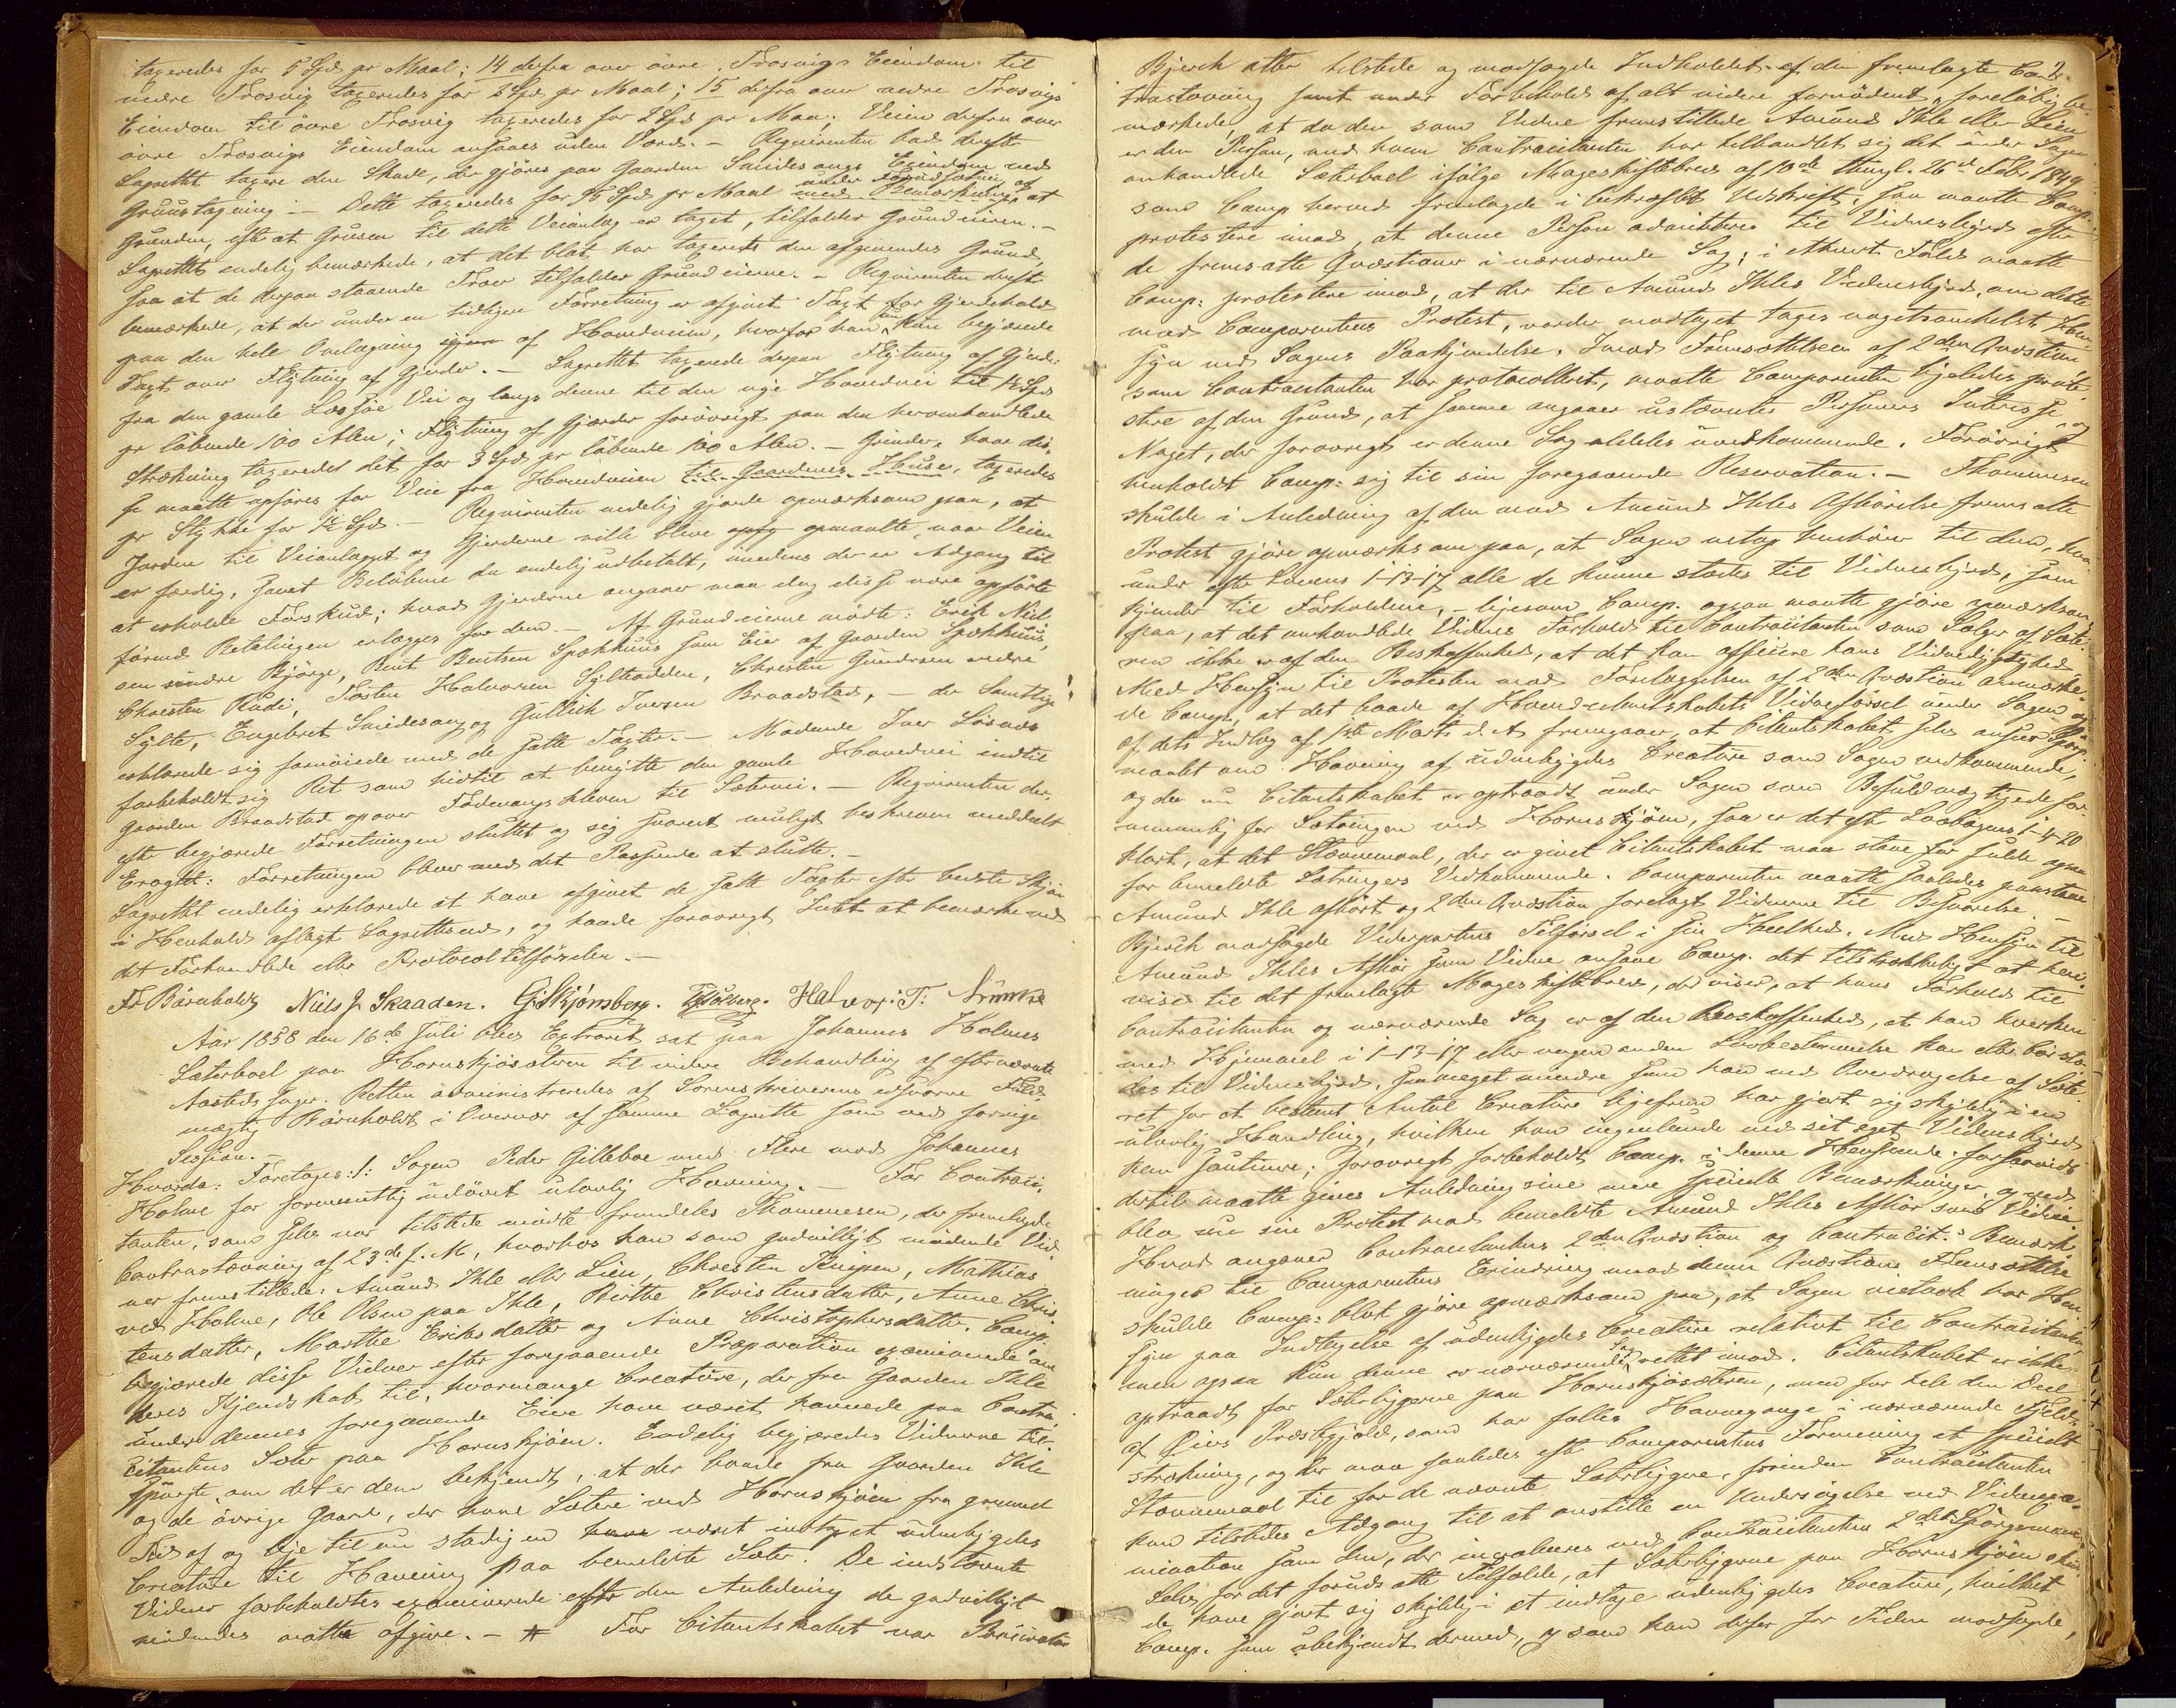 taxeredes for 5 Spd pr Maal; 14 derfra over övre Trosvigs Eiendom til
nedre Trosvig taxeredes for 2 Spd pr Maal; 15 derfra over nedre Trosvigs
Eiendom til övre Trosvig taxeredes for 2 Spd pr Maal; Veien derfra over
övre Trosvigs Eiendom ansaaes uden Værd. – Reqvirenten bad derefter
Lagrettet taxere den Skade, der gjöres paa Gaarden Smidesangs Eiendom ved
Gruustagning. – Dette taxeredes for 95 Spd pr Maal under Forudsætning af at
Grunden, efter at Grusen til dette Veianlæg er taget, tilfalder Grundeieren. –
Lagrettet endelig bemærkede, at det blot har taxeret den afgivendes Grund,
saa at de derpaa staaende Træer tilfalder Grundeierne. – Reqvirenten dernæst
bemærkede, at der under en tidligere Forretning er afgivet Taxt for Gjerdehold
paa den hele Omlægning af Hovedveien, hvorfor han nu kun begjærede
Taxt over Flytning af Gjerder. – Lagrettet taxerede derpaa Flytning af Gjerder
fra den gamle Losjøe Vei og langs denne til den nye Hovedvei til 1½ Spd
pr löbende 100 Alen; Flytning af Gjærder forövrigt paa den heromhandlede
Strækning taxeredes det for 3 Spd pr löbende 100 Alen. – Grinder, hvor dis-
se maatte opføres for Veie fra Hovedveien til Gaardenes Huse, taxeredes
pr Stykke for 1½ Spd. – Reqvirenten endelig gjorde opmærksom paa, at
Jorden til Veianlægget og Gjerderne ville blive opmaalte, naar Veien
er færdig, samt Belöbene da endelig udbetalt, imedens der er Adgang til
at erholde Forskud; hvad Gjerderne angaaer maa dog disse være opförte
förend Betalingen erlægges for dem. – Af Grundeierne mødte: Erik Niel-
sen söndre Bjørge, Bent Bentsen Spækhuus som Eier af Gaarden Spækhuus,
Christen Rudi, Tosten Halvorsen Gylteodden, Christen Gundersen nedre
Sylte, Engebret Smidesang og Gullich Iversen Braadstad, – der Samtlige
erklærede sig fornöiede med de satte Taxter. – Mødende Iver Losnæs
forbeholdt sig Ret som hidtil at benytte den gamle Hovedvei indtil
Gaarden Braadstad opover Fodevangskleven til Sætervei. – Reqvirenten der-
efter begjærede Forretningen sluttet og sig snarest muligt beskreven meddeelt
Eragtet: Forretningen bliver med det Passerede at slutte. –
Lagrettet endelig erklærede at have afgivet de satte Taxter efter bedste Skjön
i Henhold aflagt Lagrettesed, og havde forövrigt Intet at bemærke ved
det Forhandlede eller Protocoltilförselen. –
Fr Bärnholdt Niels J. Skaaden. G. Skjönsberg. Halvor: T:
Aar 1858 den 16de Juli blev Extraret sat paa Johannes Holmes
Sæterboel paa Hornskjösæteren til videre Behandling af efternævnte
Aastedssager. Retten administreredes af Sorenskriverens edsvorne Fuld-
mægtig Bärnholdt i Overvær af samme Lagrette som ved forrige
Session. –
Hvorda: Foretoges: 1: Sagen Peder Gilleboe med Flere mod Johannes
Holme for formeentlig udövet ulovlig Havning. – For Contraci-
tanten, som selv var tilstede mödte fremdeles Thommesen, der fremlagde
Contrastævning af 23de f. M, hvorhos han som godvilligt mödende Vid-
ner fremstillede: Amund Ihle eller Lien, Christen Knipen, Mathias
ved Holme, Ole Olsen paa Ihle, Berthe Christensdatter, Anne Chris-
tensdatter, Marthe Eriksdatter og Anne Christophersdatter. Comp.
begjærede disse Vidner efter foregaaende Præparation examinerede om
deres Kjendskab til, hvormange Creature, der fra Gaarden Ihle
under dennes foregaaende Eiere have været havnede paa Contra-
citantens Sæter paa Hornskjöen. Endelig begjæredes Vidnerne til-
spurgte, om det er dem bekjendt, at der baade fra Gaarden Ihle
og de övrige Gaarde, der have Sætere ved Hornskjöen fra gammel
Tid af og lige til nu stadigen været indtaget udenbygdes
Creature til Havning paa bemeldte Sæter. De indstævnte
Vidner forbeholdtes examinerede efter den Anledning de godvilligt
mödendes maatte afgive. – For Citantskabet var Procurator
Bjerck atter tilstede og modsagde Indholdet af den fremlagte Con-
trastævning samt under Forbehold af alt videre fornödent, foreløbig be-
mærkede, at da den som Vidne fremstillede Amund Ihle eller Lien
er den Person, med hvem Contracitanten har tilhandlet sig det under Sagen
omhandlede Sæterboel ifölge Mageskiftebrev af 10de thingl. 26de Febr. 1849
som Comp hermed fremlagde i bekræftet Udskrift, saa maatte Comp.
protestere imod, at denne Person admitteres til Vidnesbyrd efter
de fremsatte Qvæstioner i nærværende Sag; i ethvert Fald maatte
Comp: protestere imod, at der til Amund Ihles Vidnesbyrd, om dette
mod Comparentens Protest, vorder modtaget tages nogetsomhelst Hen-
syn ved Sagens Paakjendelse. Imod Fremsættelsen af 2den Qvæstion
som Contracitanten har protocolleret, maatte Comparenten ligeledes prote-
stere af den Grund, at samme angaaer ustævnte Personers Interesse, og
Noget, der forövrigt er denne Sag aldeles uvedkommende. Forövrigt
henholdt Comp: sig til sin foregaaende Reservation. – Thommesen
skulde i Anledning af den mod Amund Ihles Afhörelse fremsatte
Protest gjöre opmærksom paa, at Sagen netop henhörer til dem, hvor-
under efter Lovens 1-13-17 alle de kunne stædes til Vidnesbyrd, som
kjender til Forholdene, – ligesom Comp. ogsaa maatte gjöre opmærksom
paa, at det omhandlede Vidnes Forhold til Contracitanten som Sælger af Sæte-
ren ikke er af den Beskaffenhed, at det kan afficere hans Vidnedygtighed.
Med Hensyn til Protesten mod Forelæggelsen af 2den Qvæstion anmærke-
de Comp., at det baade af Hovedcitantskabets Vidneförsel under Sagen og
af dets Indlæg af 1ste Marts d. A. fremgaaer, at Citantskabet selv anseer Spörgs-
maalet om Havning af udenbygdes Creature som Sagen vedkommende,
og da nu Citantskabet er optraadt under Sagen som Befuldmægtigede for-
nemmelig for Sætringen ved Hornskjöen, saa er det efter Lovbogens 1-4-20
klart, at det Stævnemaal, der er givet Citantskabet maa staae for fulde ogsaa
for bemeldte Sætringers Vedkommende. Comparenten maatte saaledes paastaae
Amund Ihle afhört og 2den Qvæstion forelagt Vidnerne til Besvarelse. –
Bjerck modsagde Vederpartens Tilförsel i sin Heelhed. Med Hensyn til
Amund Ihles Afhör som Vidne ansaae Comp. det tilstrækkeligt at hen-
vise til det fremlagte Mageskiftebrev, der viser, at hans Forhold til
Contracitanten og nærværende Sag er af den Beskaffenhed, at han hverken
med Hjemmel i 1-13-17 eller nogen anden Lovbestemmelse kan eller bör stæ-
des til Vidnesbyrd, saameget mindre som han ved Overdragelse af Sæte-
ret for et bestemt Antal Creature ligefrem har gjort sig skyldig i en
ulovlig Handling, hvilken han ingenlunde ved sit eget Vidnesbyrd
kan sautinere; forövrigt forbeholdt Comp. i denne Henseende, forsaavidt
dertil maatte gives Anledning sine mere specielle Bemærkninger, og ved-
blev nu sin Protest mod bemeldte Amund Ihles Afhör som Vidne.
Hvad angaaer Contracitantens 2den Qvæstion og Contracit:s Bemærk-
ninger til Comparentens Erindring mod denne Qvæstions Fremsættelse
skulde Comp: blot gjöre opmærksom paa, at Sagen vistnok har Hen-
syn paa Indtagelse af udenbygdes Creature relativt til Contracitanten,
men ogsaa kun denne er nærværende Sag rettet imod. Citantskabet er ikke
optraadt for Sæterbygerne paa Hornskjösæteren, men for hele den Deel
af Öiers Præstegjæld, som har fælles Havnegange i nærværende Fjeld-
strækning, og der maa saaledes efter Comparentens Formening et specielt
Stævnemaal til for de nævnte Sæterbygere, forinden Contracitanten
kan tilstedes Adgang til at anstille en Undersögelse ved Vidneexa-
mination som den, der involveres ved Contracitantens 2det Spörgsmaal.
Selv for det forudsatte Tilfælde, at Sæterbygerne paa Hornskjöen skul-
de have gjort sig skyldig i at indtage udenbygdes Creature, hvilket
Comp. som ubekjendt dermed, og som han derfor for Tiden modsagde,